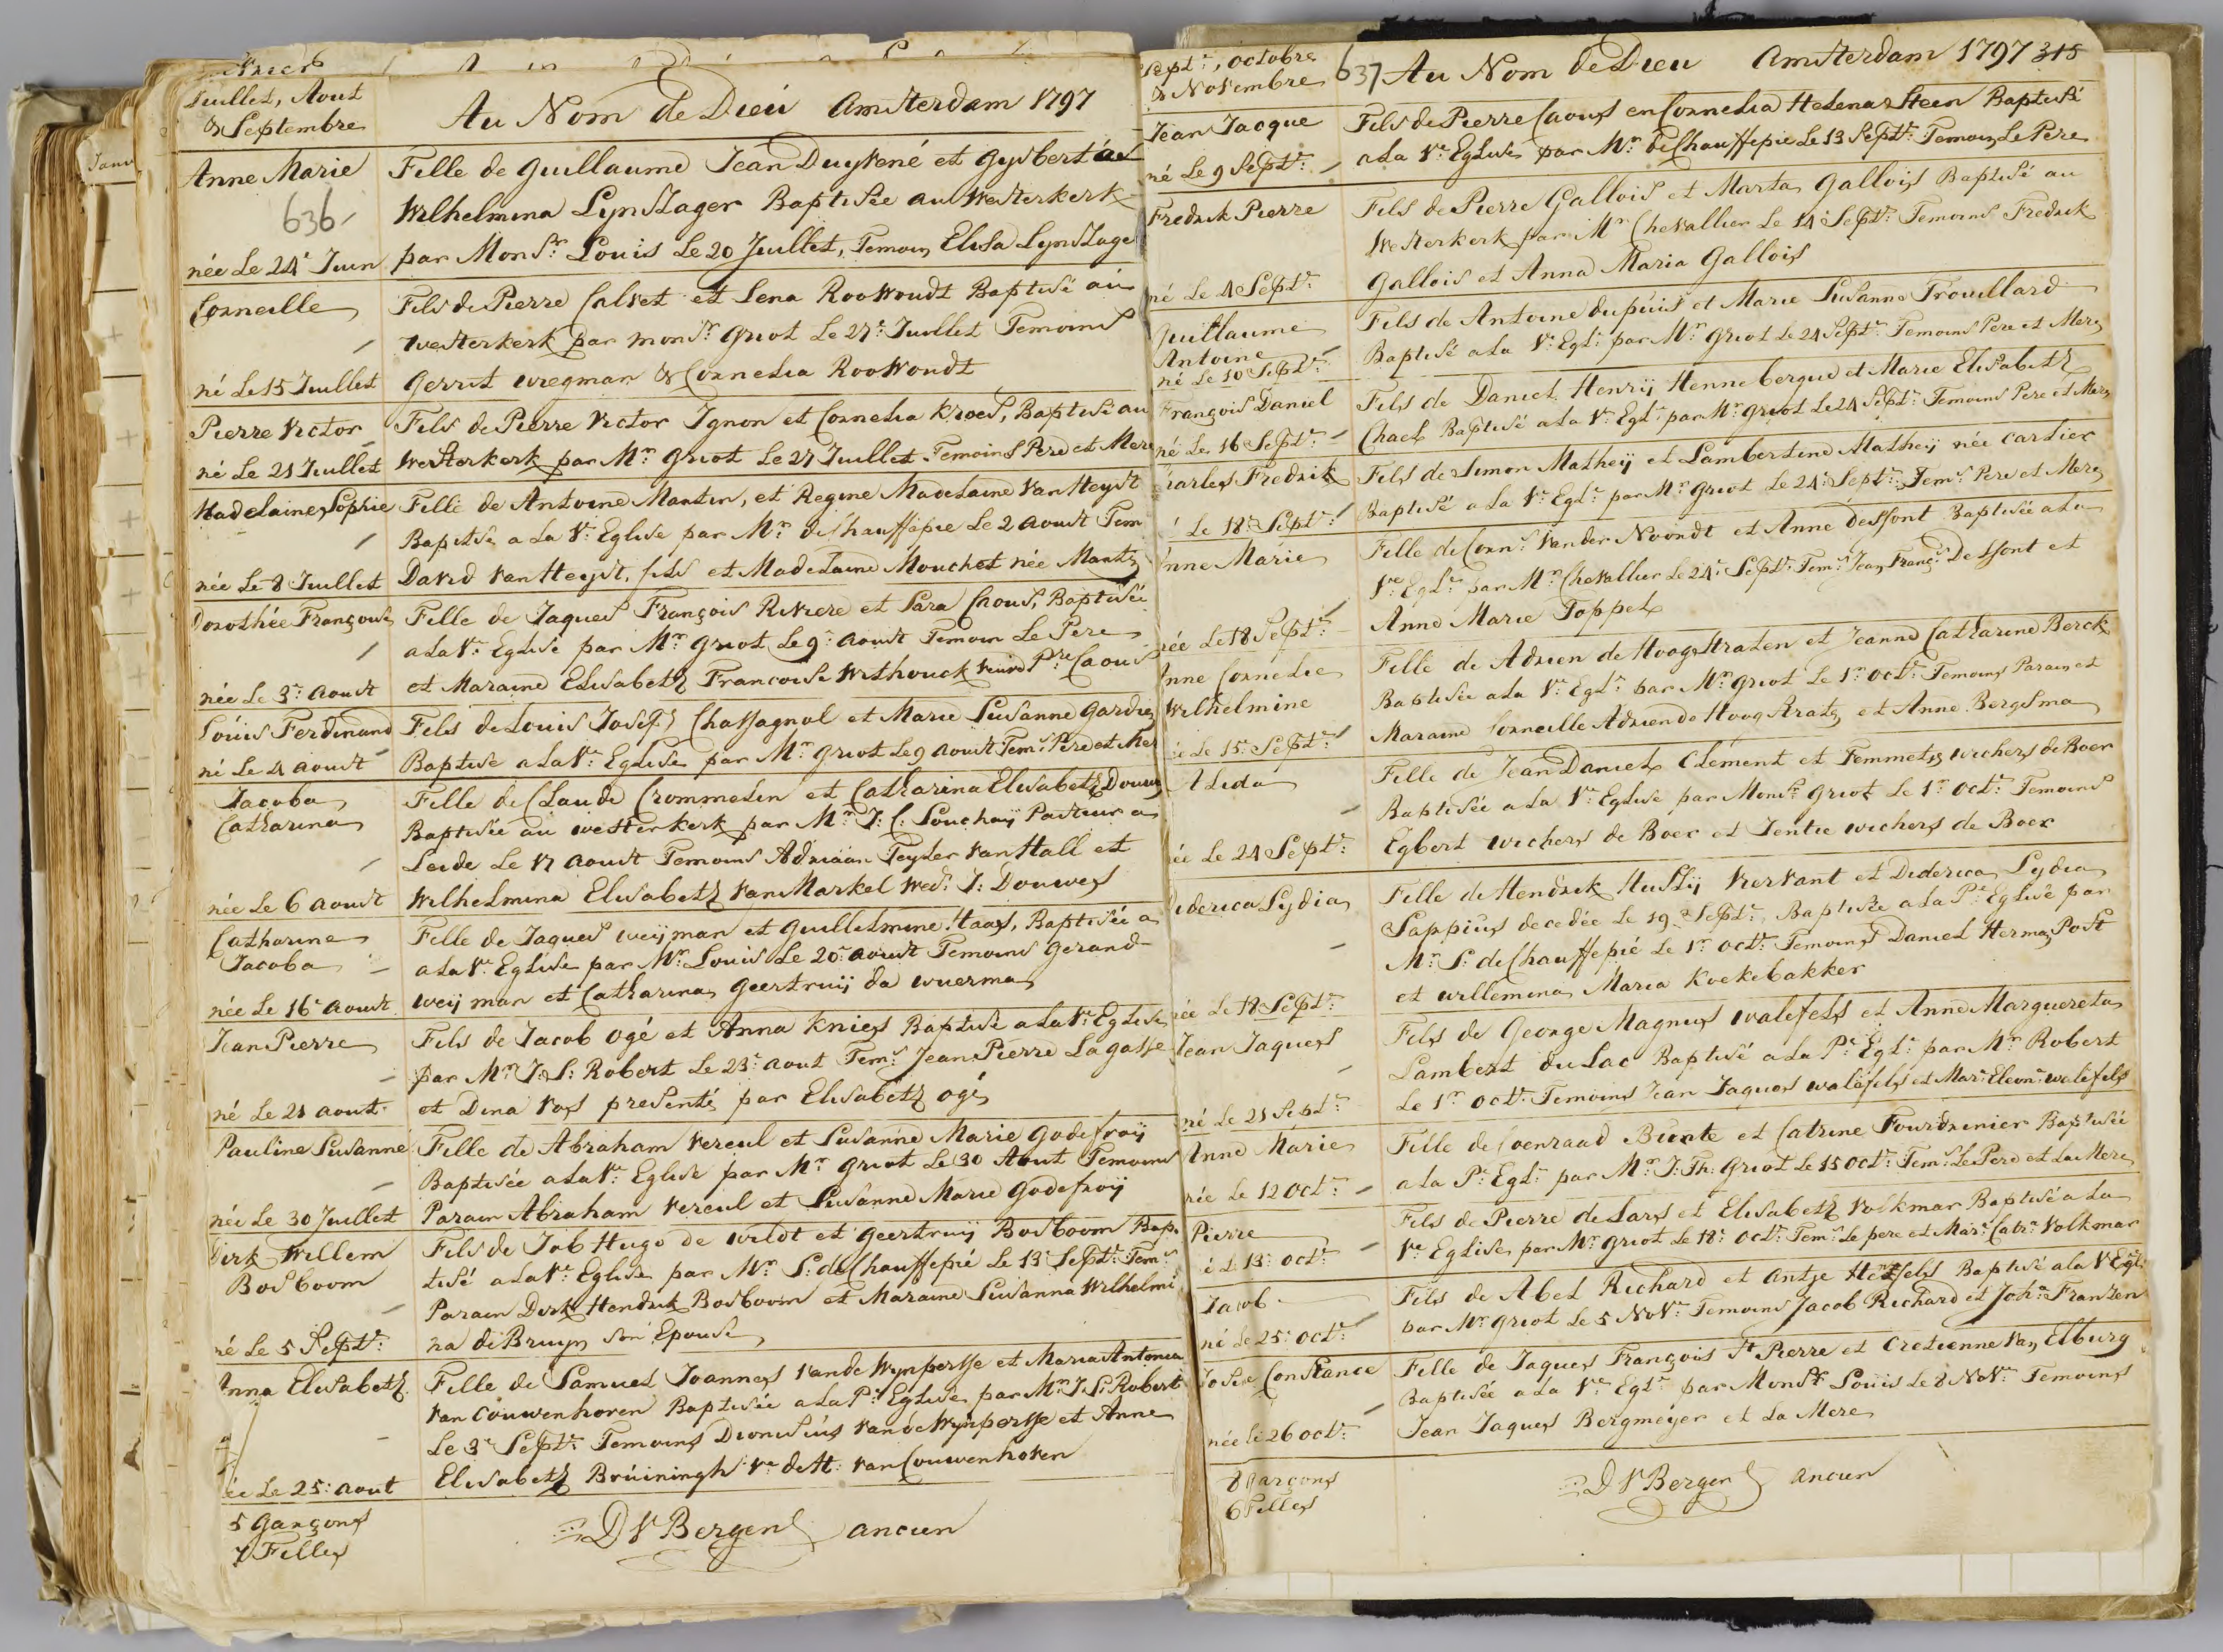 Juillet, Aout
& Septembre
Au Nom de Dieu Amsterdam 1797
Anne Marie
636
née Le 24e Juin
Fille de Guillaume Jean Duykené et Gysberta
Wilhelmina Lynslager Baptisée au Westerkerk
par Monsr. Louis Le 20 Juillet, Temoin Elisa Lynslage
Corneille
né Le 15 Juillet
Fils de Pierre Calvet et Lena Roowoudt Baptisé au
Westerkerk par monsr. Griot Le 27e Juillet Temoins
Gerrit Wregman & Cornelia Roowoudt
Pierre Victor
né Le 21 Juillet
Fils de Pierre Victor Ignon et Cornelia Kroes, Baptisé au
Westerkerk par Mr. Griot Le 27 Juillet Temoins Pere et Mere
Madelaine Sophie
née Le 8 Juillet
Fille de Antoine Mantin, et Regine Madelaine Van Heyst
Baptisée a La Ve. Eglise par Mr. de Chauffepie Le 2 Aoust Tem
David Van Heyst, fils et Madelaine Mouchet née Mantin
Dorothée Françoise
née Le 3e Aoust
Fille de Jaques François Riviere et Sara Caous, Baptisée
a La Ve. Eglise par Mr. Griot Le 9e Aoust Temoin Le Pere
et Maraine Elisabeth Francoise Withouck veuve Pre. Caous
Louis Ferdinand
né Le 4 aoust
Fils de Louis Josefs Chassagnol et Marie Susanne Gardie
Baptisé a La Ve. Eglise par Mr. Griot Le 9 Aoust Tems. Pere et Mer
Jacoba
Catharina
née Le 6 aoust
Fille de Claude Crommelin et Catharina Elisabeth Douwes
Baptisée au Westerkerk par Mr. J: C. Souchay Pasteur a
Leide Le 17 Aoust Temoins Adriaan Teyler Van Hall et
Wilhelmina Elisabeth Van Markel Wed: J: Douwes
Catharine
Jacoba
née Le 16e aoust
Fille de Jaques Weyman et Guillelmine Haas, Baptisée a
a La Ve. Eglise par Mr. Louis Le 20e Aoust Temoins Gerard
Weyman et Catharina Geertruij da Wuerma
Jean Pierre
né Le 21 aout
Fils de Jacob Ogé et Anna Knies Baptisé a La Ve. Eglise
par Mr. J. S: Robert Le 23e aout Tems. Jean Pierre Lagasse
et Dina Vos presenté par Elisabeth Ogé
Pauline Susanne
née Le 30 Juillet
Fille de Abraham Vereul et Susanne Marie Godefroij
Baptisée a La Ve. Eglise par Mr. Griot Le 30 Aout Temoins
Parain Abraham Vereul et Susanne Marie Godefroij
Dirk Willem
Bosboom
né Le 5 Septr:
Fils de Job Hugo de Wildt et Geertruij Bosboom Bap
tisé a La Ve. Eglise par Mr. S: de Chauffepié Le 13e Septr: Tems
Parain Dirk Hendrik Bosboom et Maraine Susanna Wilhelmi
na de Bruyn son Epouse
Anna Elisabeth
ée Le 25: aout
Fille de Samuel Joannes Van de Wynpersse et Maria Antonia
Van Couwenhoven Baptisée a La Pe. Eglise par Mr. J. S: Robert
Le 3e Septr: Temoins Dionisius Van de Wynpersse et Anne
Elisabeth Bruiningh Ve. de H: Van Couwenhoven
5 Garçons
7 Filles
D V Bergen ancien
Septr:, Octobre
& Novembre
637 Au Nom de Dieu Amsterdam 1797 315
Jean Jacque
né Le 9 Septr:
Fils de Pierre Caous en Cornelia Helena Steen Baptisé
a La Ve. Eglise par Mr. de Chauffepie Le 13 Septr: Temoin Le Pere
Fredrik Pierre
né Le 4 Septr:
Fils de Pierre Gallois et Marta Gallois Baptisé au
Westerkerk par Mr. Chevallier Le 14e Septr: Temoins Fredrik
Gallois et Anna Maria Gallois
Guillaume
Antoine
né Le 10 Septr:
Fils de Antoine Dupuis et Marie Susanne Trouillard
Baptisé a La Ve. Egl: par Mr. Griot Le 24 Septr: Temoins Pere et Mere
François Daniel
né Le 16 Septr:
Fils de Daniel Henrij Hennebergue et Marie Elisabeth
Chaél Baptisé a La Ve. Egl: par Mr. Griot Le 24 Septr: Temoins Pere et Mere
Charles Fredrik
é Le 18e Septr:
Fils de Simon Matheij et Lambertine Matheij née Cartier
Baptisé a La Ve. Egl: par Mr. Griot Le 24e Septr: Tems. Pere et Mere
Anne Marie
née Le 18 Septr:
Fille de Corns. Van der Noordt et Anne Dessont Baptisée a La
Ve. Egl: par Mr. Chevallier Le 24e Septr: Tems. Jean Françs. Dessont et
Anne Marie Toppel
Anne Cornelie
Wilhelmine
ée Le 15e Septr:
Fille de Adrien de Hoogstraten et Jeanne Catharine Berck
Baptisée a La Ve. Egl: par Mr. Griot Le 1r. Octr: Temoins Parain et
Maraine Corneille Adrien de Hoogstraten et Anne Bergsma
Alida
ée Le 24 Septr:
Fille de Jean Daniel Clément et Femmetje Wichers de Boer
Baptisée a La Ve. Eglise par Monsr. Griot Le 1r. Octr: Temoins
Egbert Wichers de Boer et Jentie Wichers de Boer
Diderica Lydia
née Le 18 Septr:
Fille de Hendrik Huslij Viervant et Diderica Lydia
Sappius decedée Le 19 Septr:, Baptisée a La Pe. Eglise par
Mr. S: de Chauffepié Le 1r. Octr: Temoins Daniel Herman Post
et Willemina Maria Koekebakker
Jean Jaques
né Le 21 Septr:
Fils de George Magnus Walefels et Anne Margueretta
Lambert du Lac Baptisé a La Pe. Egl: par Mr. Robert
Le 1r. Octr: Temoins Jean Jaques Walefels et Mar: Eleonr: Walefels
Anne Marie
née Le 12 Octr:
Fille de Coenraad Bunte et Catrine Fourdrinier Baptisée
a La Pe. Egl: par Mr. J: Th: Griot Le 15 Octr: Tems. Le Pere et La Mere
Pierre
é Le 13: Octr:
Fils de Pierre de Lars et Elisabeth Volkmar Baptisé a La
Ve. Eglise par Mr. Griot Le 18: Octr: Tems. Le pere et Mar: Catr: Volkmar
Jacob
né Le 25: Octr:
Fils de Abel Richard et Antje Hentfels Baptisé a La V Egl:
par Mr. Griot Le 5 Novr: Temoins Jacob Richard et Joha: Franzen
Josée Constance
née Le 26 Octr:
Fille de Jaques François St. Pierre et Cretienne Van Elburg
Baptisée a La Ve. Egl: par Monsr. Louis Le 8 Novr: Temoins
Jean Jaques Bergmeyer et La Mere
8 Garçons
6 Filles
D V Bergen ancien